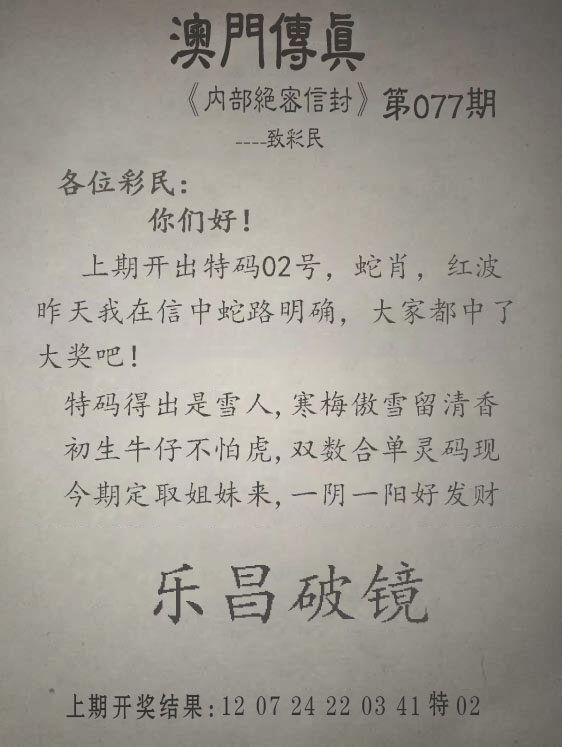 澳門傳真
《内部絕密信封》第077期
----致彩民
各位彩民：
你们好！
上期开出特码02号，蛇肖，红波
昨天我在信中蛇路明确，大家都中了
大奖吧！
特码得出是雪人,寒梅傲雪留清香
初生牛仔不怕虎,双数合单灵码现
今期定取姐妹来,一阴一阳好发财
乐昌破镜
上期开奖结果:12 07 24 22 03 41 特 02